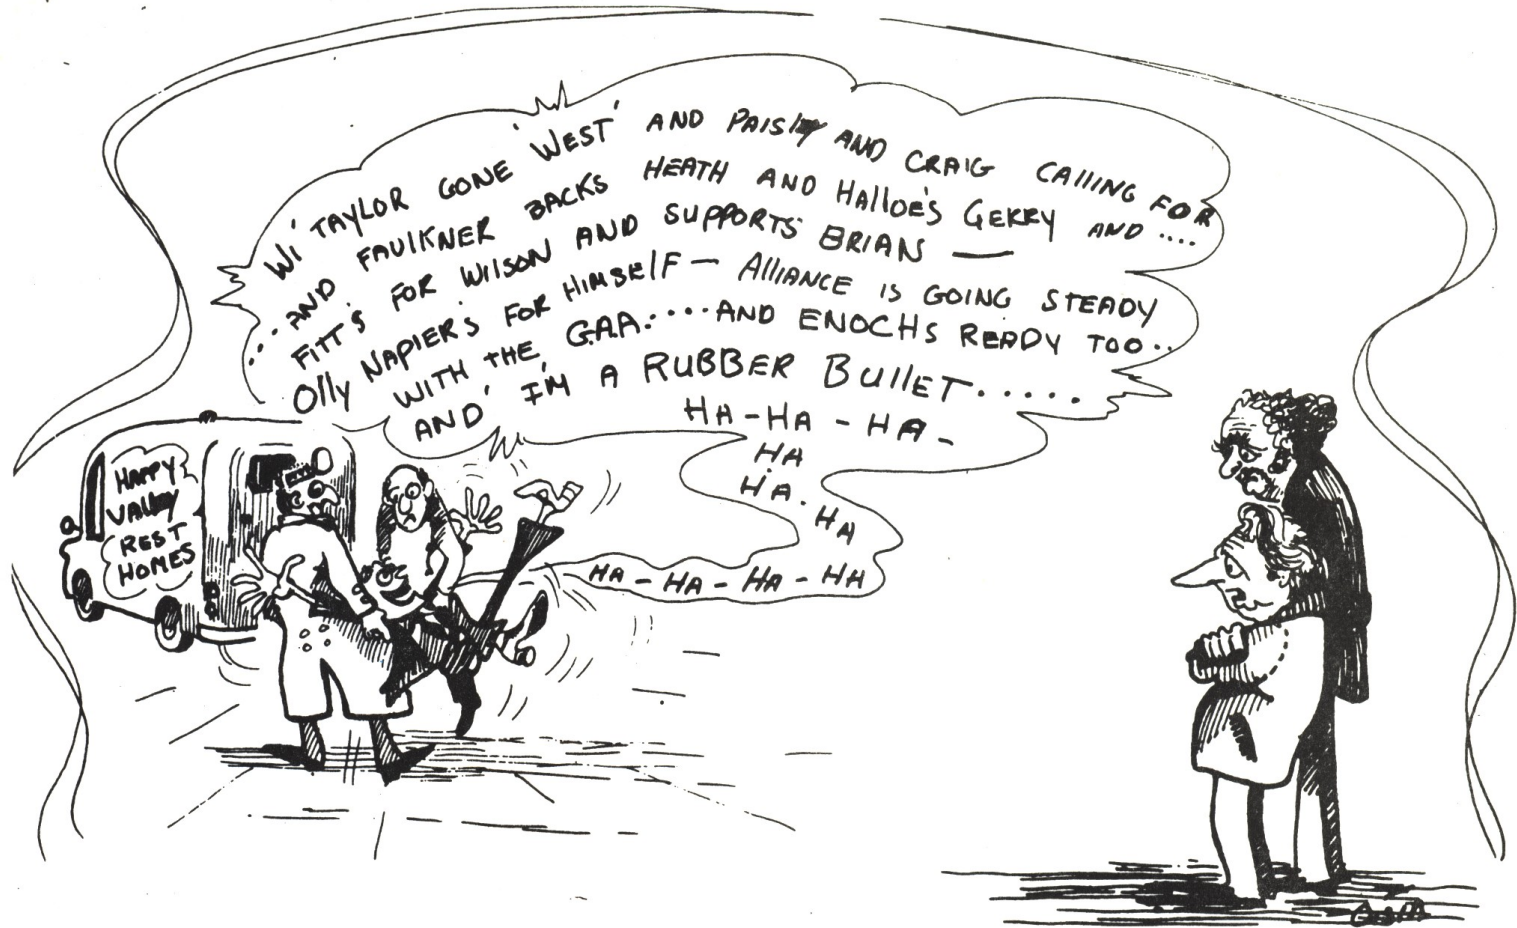 WI' TAYLOR GONE 'WEST' AND PAISLY AND CRAIG CALLING FOR
...AND FAULKNER BACKS HEATH AND HALLOE'S GERRY AND ....
FITT'S FOR WILSON AND SUPPORTS BRIAN —
OLLY NAPIER'S FOR HIMSELF — ALLIANCE IS GOING STEADY
WITH THE G.A.A.....AND ENOCHS READY TOO..
AND' I'M A RUBBER BULLET.....
HA-HA-HA-
HA
HA.
HA
HA-HA-HA-HA
HAPPY
VALLEY
REST
HOMES